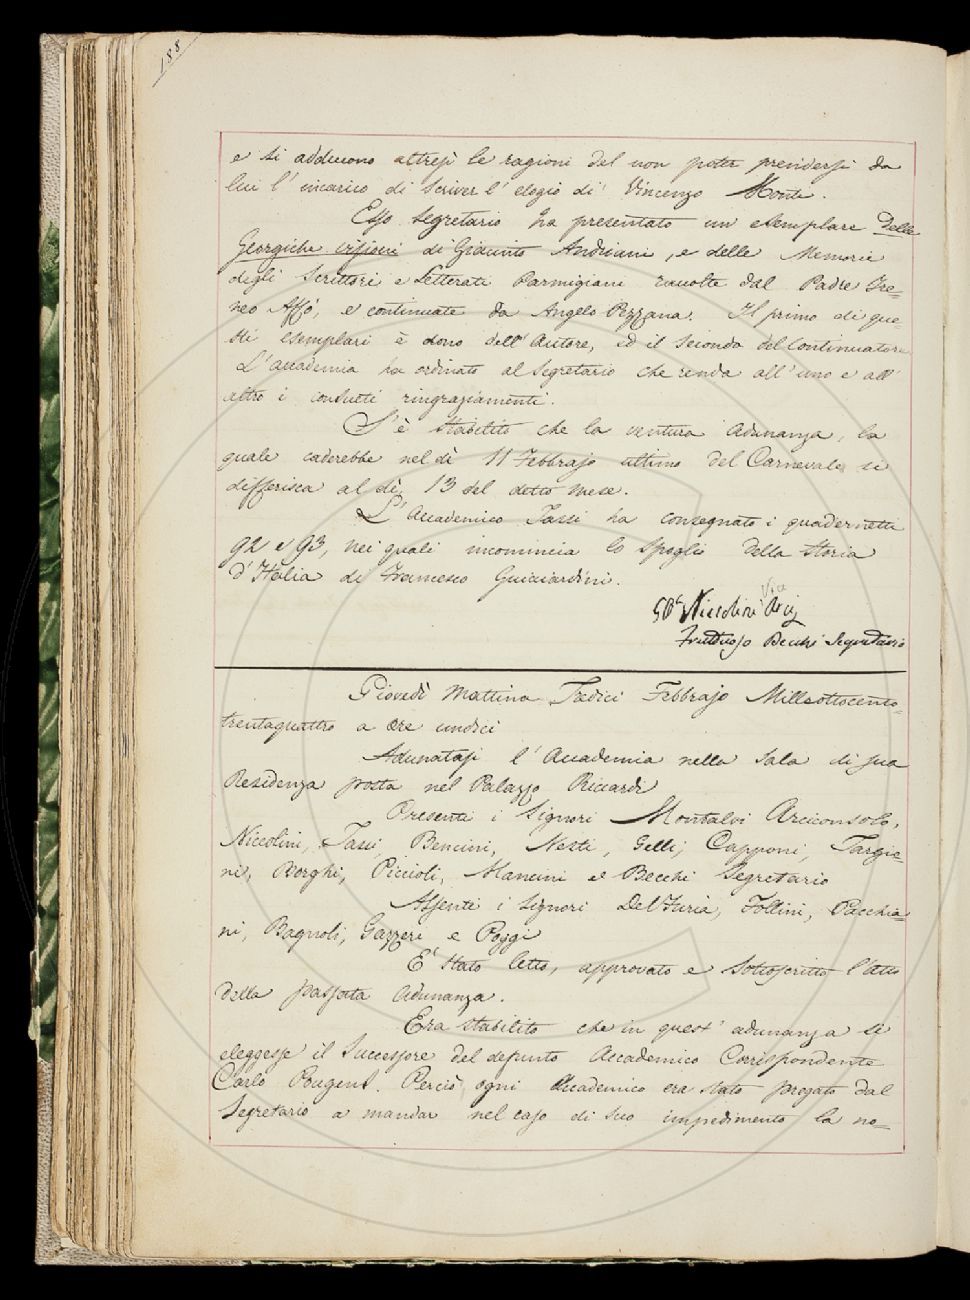 188
e si adducono altresì le ragioni del non poter prendersi da
lui l'incarico di scriver l'elogio di Vincenzo Monti.
Esso Segretario ha presentato un esemplare Delle
Georgiche di Giacinto Andriani, e delle Memorie
degli Scrittori e Letterati Parmigiani raccolte dal Padre Ire=
neo Affò, e continuate da Angelo Pezzana. Il primo di que=
sti esemplari è dono dell'Autore, ed il secondo del Continuatore
L'accademia ha ordinato al Segretario che renda all'uno e all'
altro i consueti ringraziamenti.
S'è stabilito che la ventura adunanza, la
quale caderebbe nel dì 11 Febbrajo ultimo del Carnevale si
differisca al dì 13 del detto mese.
L'Accademico Tassi ha consegnato i quadernetti
92 e 93, nei quali incomincia lo spoglio della Storia
d'Italia di Francesco Guicciardini.
Vice
Niccolini Arcij
Fruttuoso Becchi Segretario
Giovedì Mattina Tredici Febbrajo Milleottocento=
trentaquattro a ore undici
Adunatasi l'Accademia nella Sala di sua
Residenza posta nel Palazzo Riccardi
Presenti i Signori Montalvi Arciconsolo,
Niccolini, Tassi, Bencini, Nesti, Gelli, Capponi, Targio=
ni, Borghi, Piccioli, Mancini e Becchi Segretario
Assenti i Signori Del Furia, Follini, Pacchia=
ni, Bagnoli, Gazzeri e Poggi
E' stato letto, approvato e sottoscritto l'atto
della passata adunanza.
Era stabilito che in quest'adunanza si
eleggesse il Successore del defunto Accademico Corrispondente
Carlo Pougens. Perciò ogni Accademico era stato pregato dal
Segretario a mandar nel caso di suo impedimento la no=